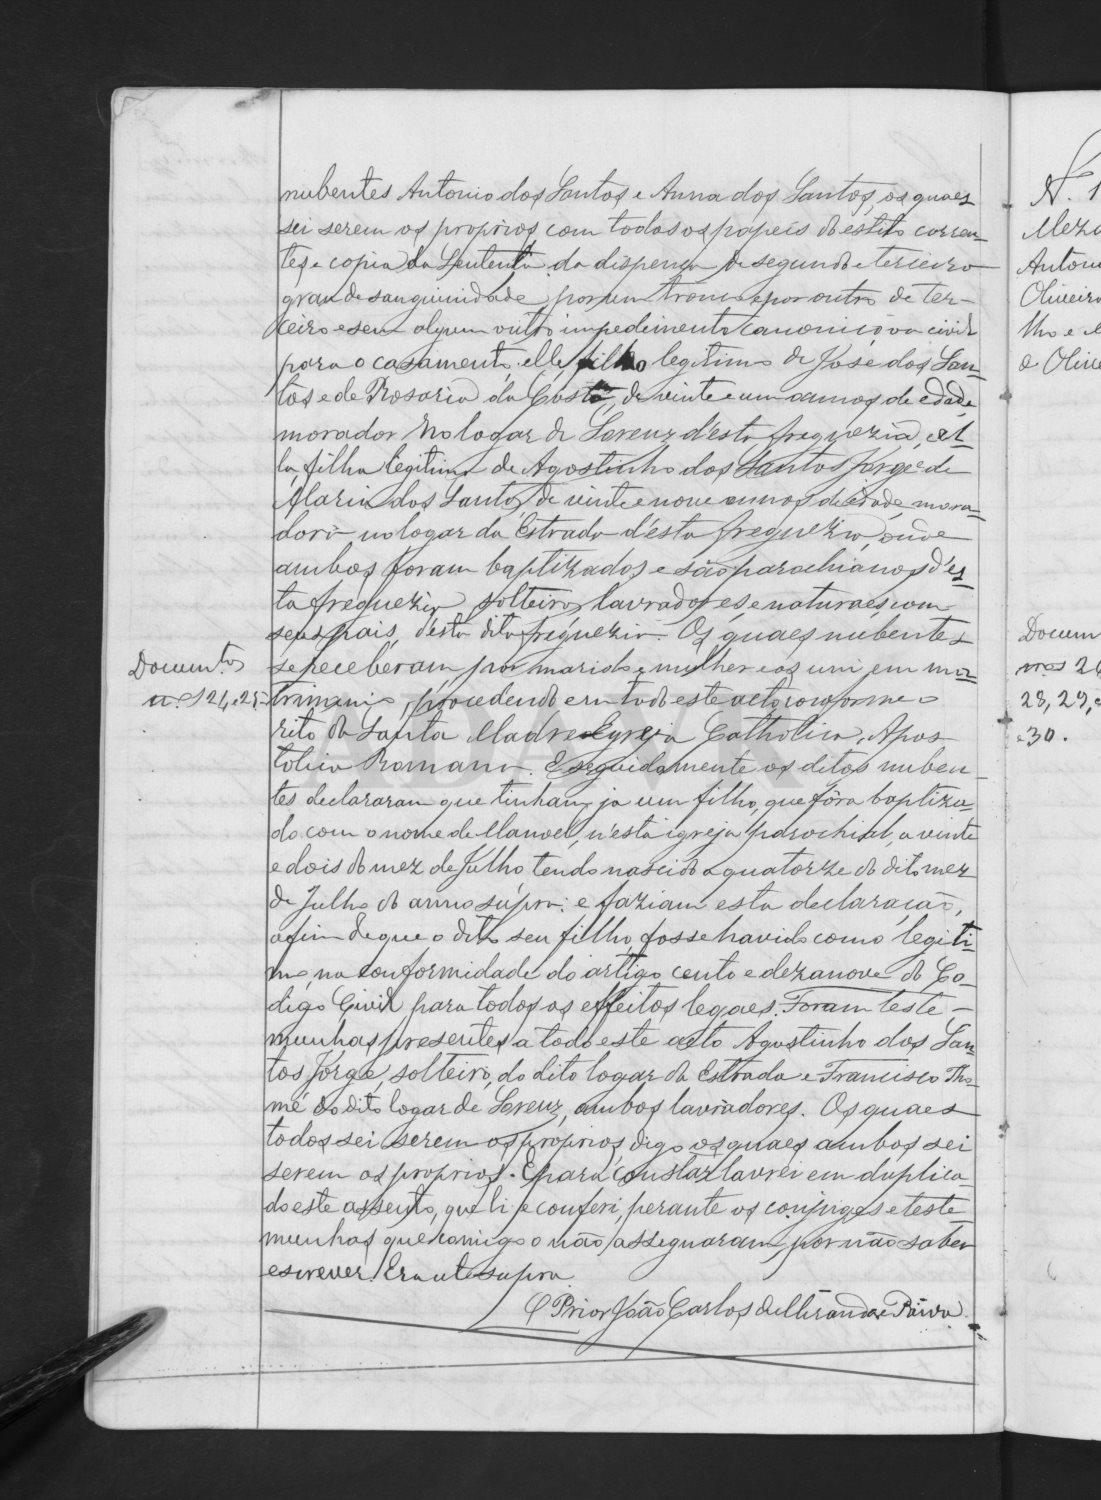 nubentes Antonio dos Santos e Anna dos Santos, os quaes
sei serem os proprios com todos os papeis do estilo corren-
tes e copia da Sentença da dispença de segundo e terceiro
grau de sanguinidade, por um tronco e por outro de ter-
ceiro e sem algum outro impedimento canonico ou civil
para o casamento, elle filho legitimo de José dos San-
tos e de Rosaria da Costa, de vinte e um annos de edade,
morador no logar de Sorenz d'esta freguezia, e el-
la, filha legitima de Agostinho dos Santos Jorge e de
Maria dos Santos, de vinte e nove annos de edade, mora-
dora no logar da Estrada d'esta freguezia, onde
ambos foram baptizados e são parochianos d'es-
ta freguezia, solteiros, lavradores, e naturaes, com
seus pais, d'esta dita freguezia. Os quaes nubentes
Documentos
se receberam por marido e mulher e os uni em ma-
n.os 24, e 25
trimonio, procedendo em todo este acto conforme o
rito da Santa Madre Egreja Catholica, Apos
tolica Romana. E seguidamente os ditos nuben-
tes declararam que tinham ja um filho, que fôra baptiza-
do com o nome de Manoel, n'esta igreja parochial, a vinte
e dois do mez de Julho tendo nascido a quatorze do dito mez
de Julho do anno súpra: e faziam esta declaração,
afim de que o dito seu filho fosse havido como legiti-
mo, na conformidade do artigo cento e dezanove do Co-
digo Civil para todos os effeitos legaes. Foram teste-
munhas presentes a todo este acto Agostinho dos San-
tos Jorge, solteiro, do dito logar da Estrada e Francisco Tho-
mé do dito logar de Sorenz, ambos lavradores. Os quaes
todos sei serem os proprios, digo os quaes ambos sei
serem os proprios. E para constar lavrei em duplica-
do este assento, que li e conferi, perante os conjuges e teste
munhas que comigo o não assegnaram, por não saber
escrever. Era ut supra.
O Prior João Carlos de Miranda e Paiva.
N. 1
Antoni
Oliveir
lho e
e Olive
Docum
n.os 26
28, 29, e
e 30.